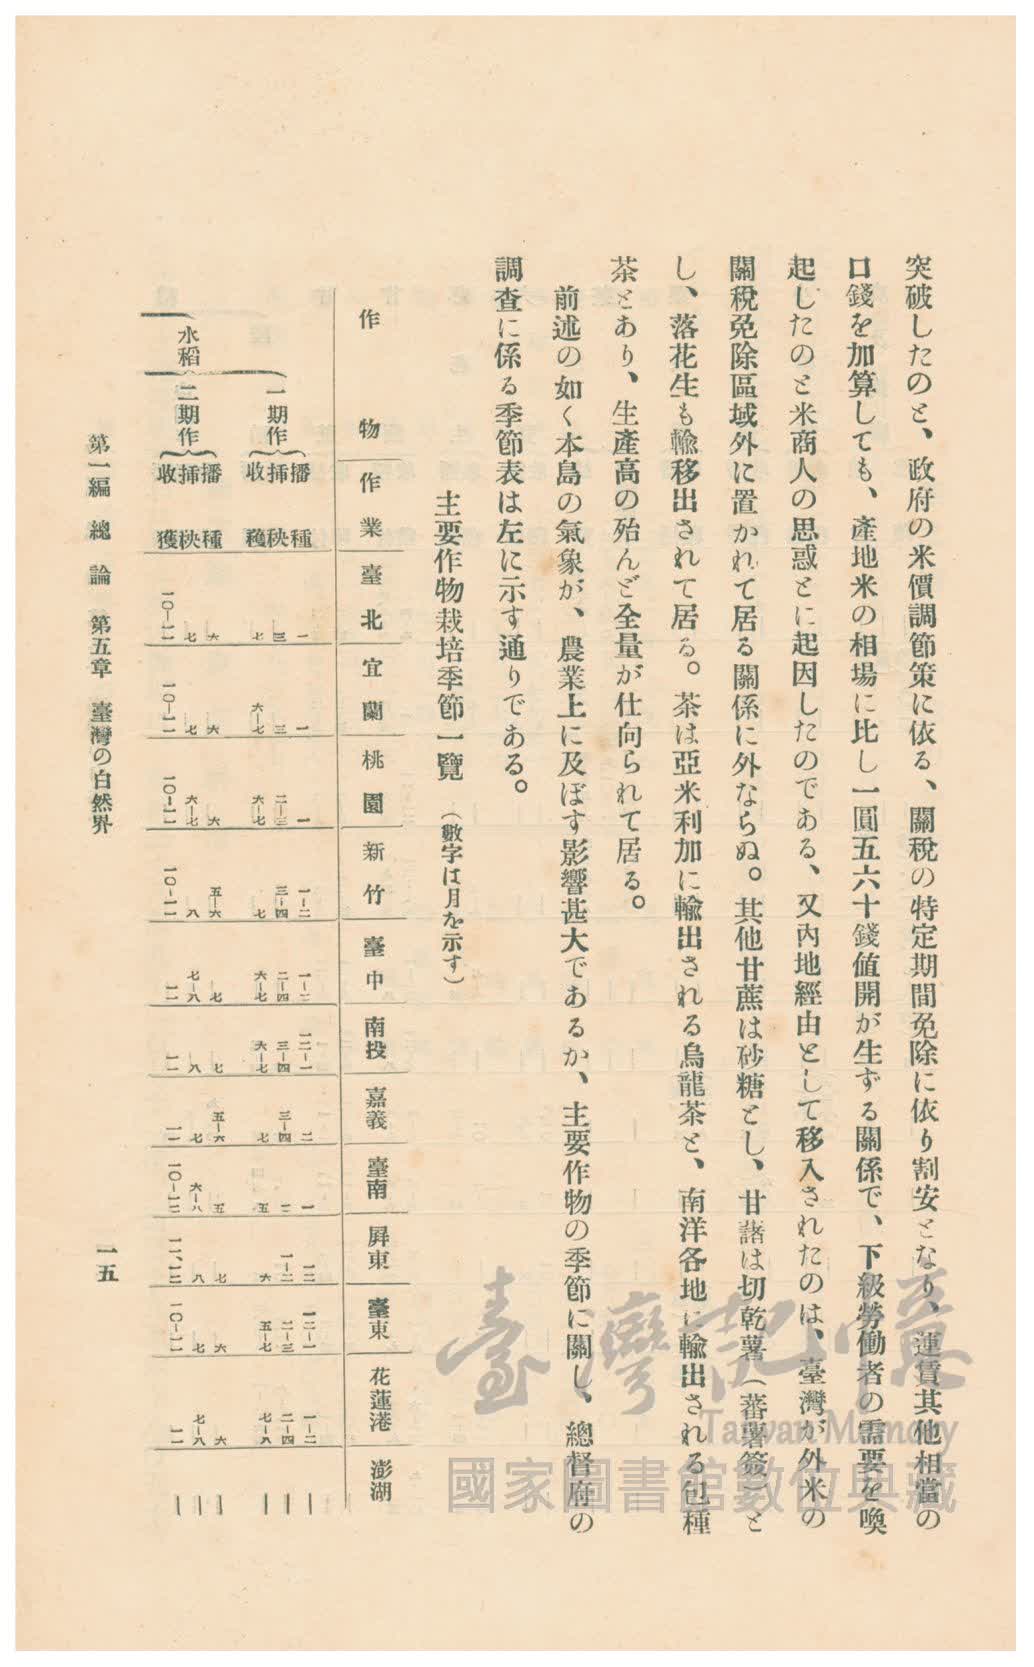 突破したのと、政府の米價調節策に依る、關稅の特定期間免除に依り割安となり、運賃其他相當の
口錢を加算しても、產地米の相場に比し一圓五六十錢値開が生ずる關係で、下級勞働者の需要を喚
起したのと米商人の思惑とに起因したのである、又內地經由として移入されたのは、臺灣が外米の
關稅免除區域外に置かれて居る關係に外ならぬ。其他甘蔗は砂糖とし、甘藷は切乾薯(蕃薯簽)と
し、落花生も輸移出されて居る。茶は亞米利加に輸出される烏龍茶と、南洋各地に輸出される包種
茶とあり、生產高の殆んど全量が仕向られて居る。
前述の如く本島の氣象が、農業上に及ぼす影響甚大であるか、主要作物の季節に關し、總督府の
調查に係る季節表は左に示す通りである。
主要作物栽培季節一覽 (數字は月を示す)
作 物 作 業 臺 北 宜 蘭 桃 園 新 竹 臺 中 南投 嘉義 臺南 屏東 臺東 花蓮港 澎湖
水稻
一期作
播種 一 一 一 一-二
揷秧 三 三 二-三 三-四 二-四 三-四 三-四
收穫 七 六-七 六-七 七 六-七 六-七 七 五 六 五-七 七-八
二期作
播種 六 六 六 五-六 七 七 五-六 五 七 六 六
揷秧 七 七 六-七 八 七-八 八 七 六-八 八 七 七-八
收穫 一〇-一一 一〇-一一 一〇-一一 一〇-一一
第一編 總 論 第五章 臺灣の自然界
一五
臺灣記憶
Taiwan Memory
國家圖書館數位典藏